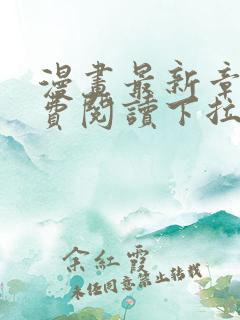 漫畫最新章
費閱讀下拉
余紅霞
未经同意禁止转载